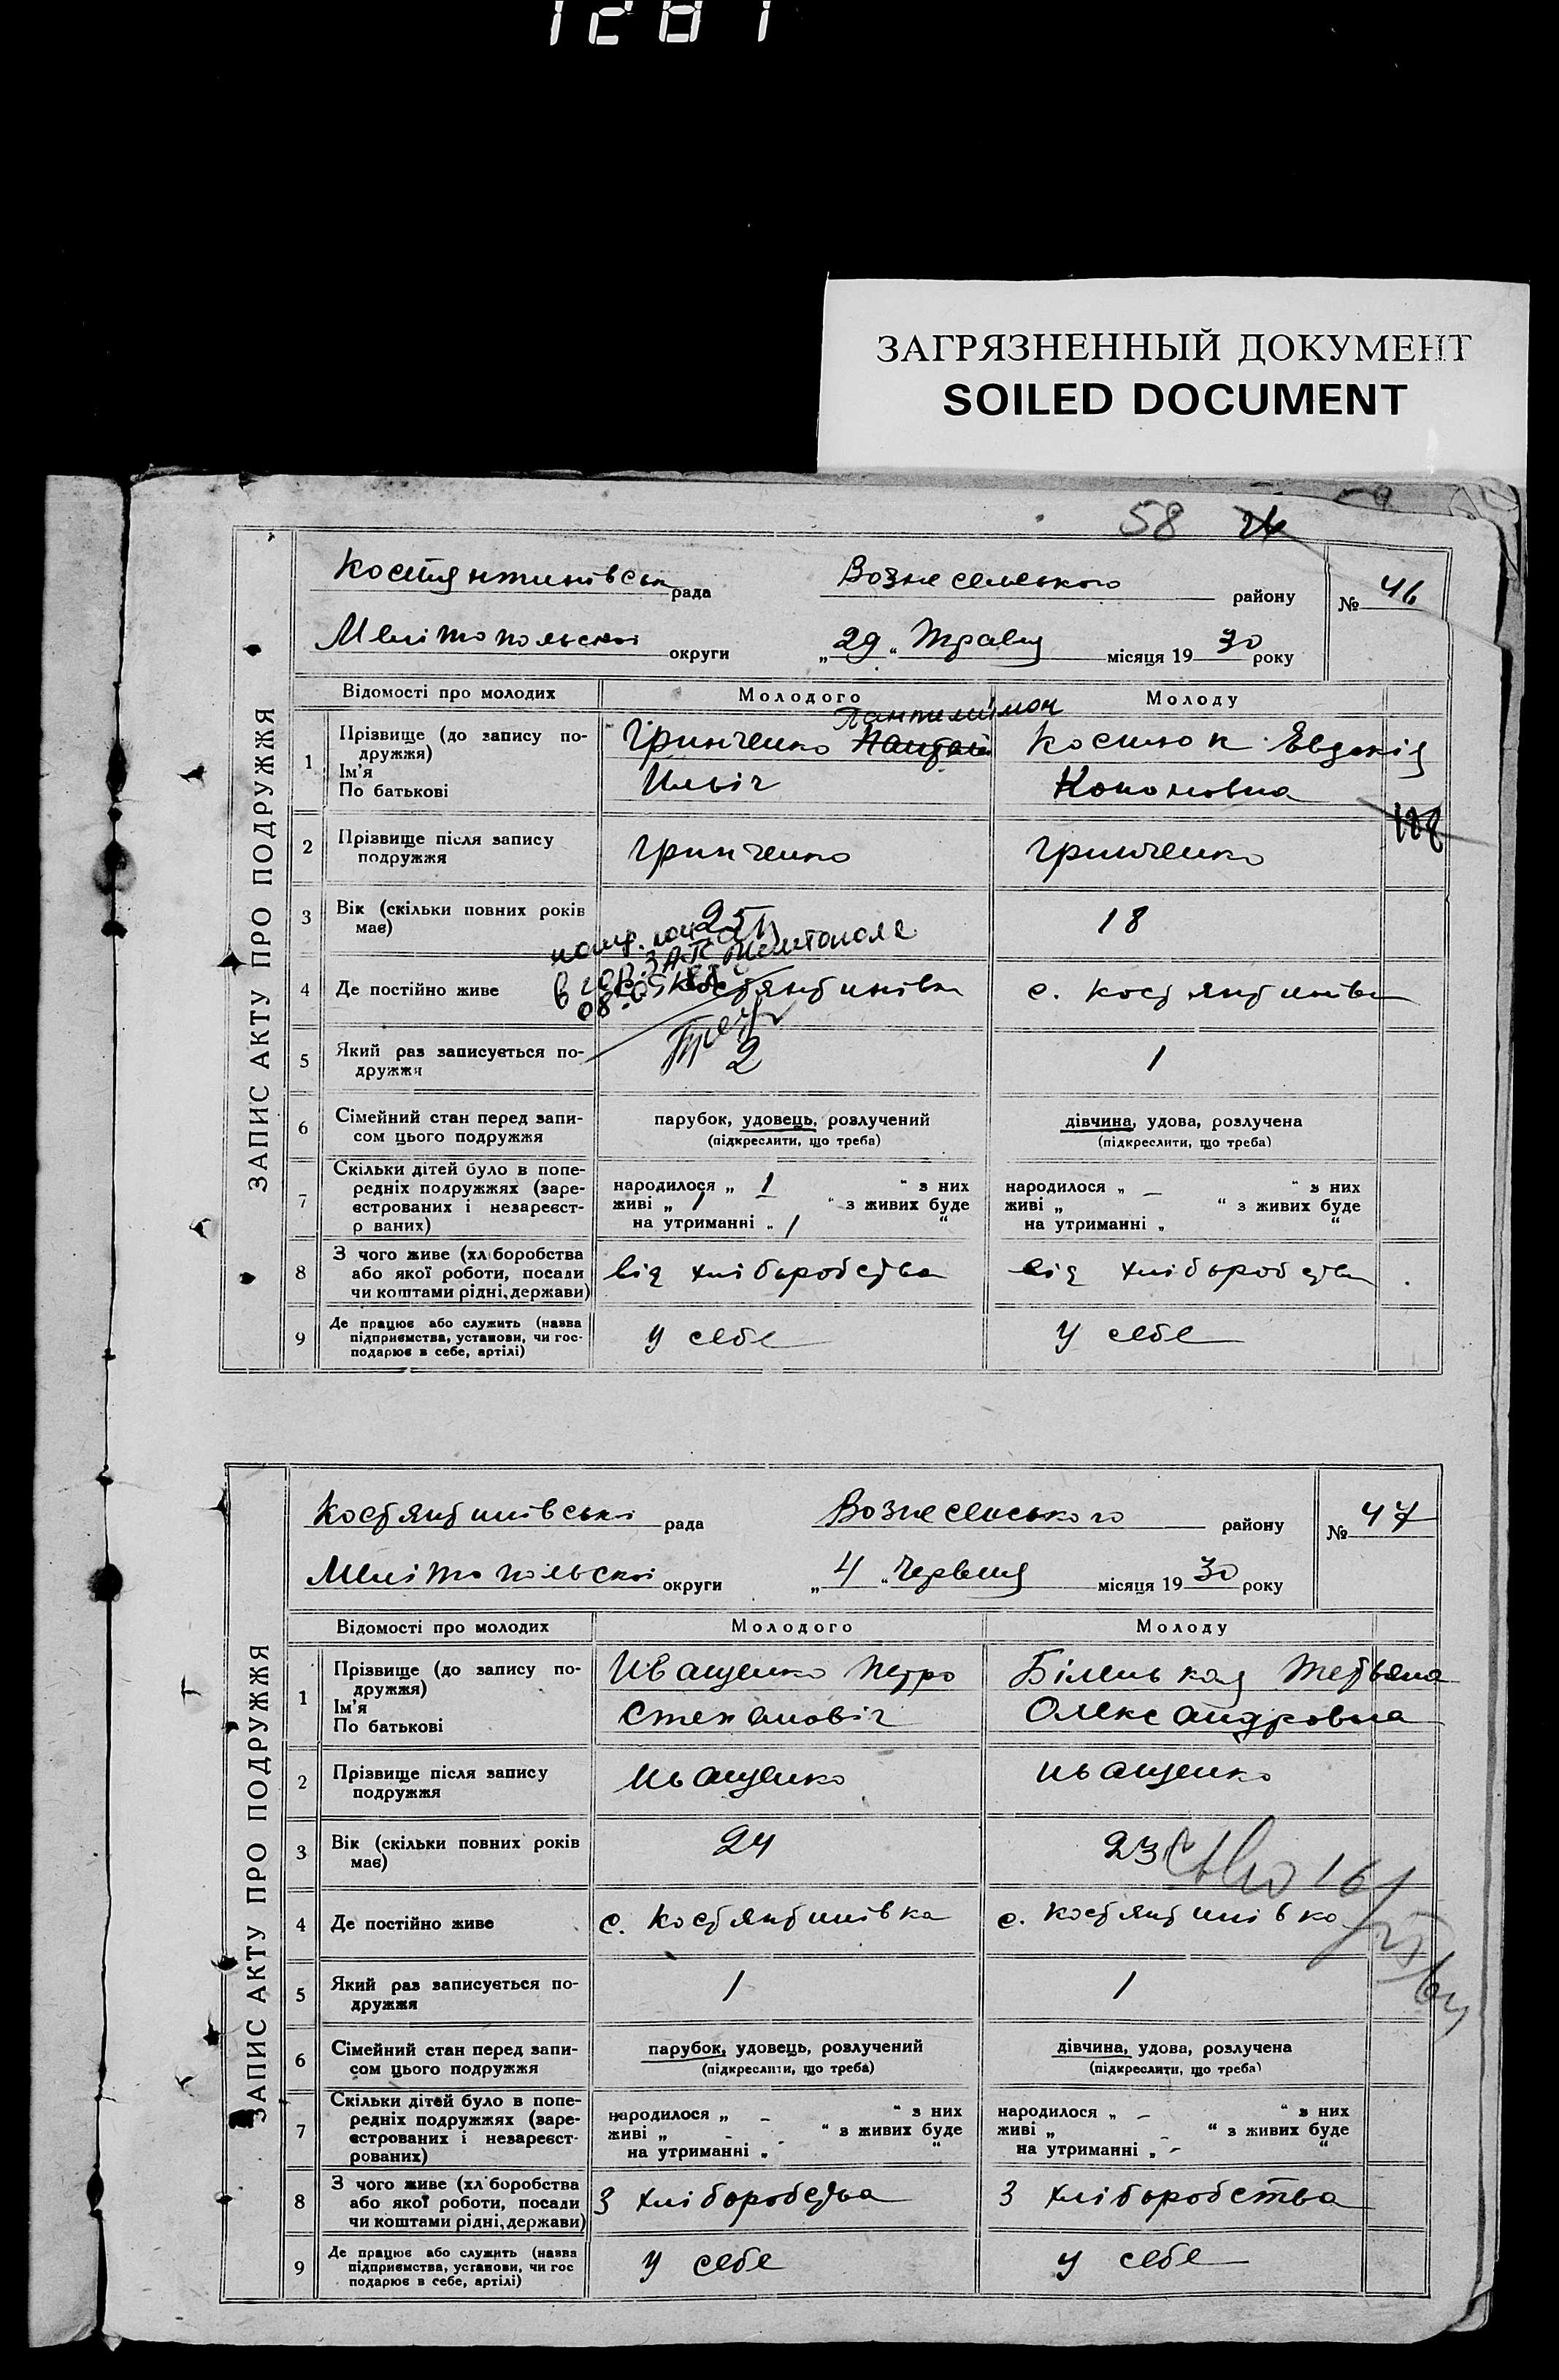 1281
ЗАГРЯЗНЕННЫЙ ДОКУМЕНТ
SOILED DOCUMENT
58
ЗАПИС АКТУ ПРО ПОДРУЖЖЯ
Костянтинівськ рада Вознесенського району № 46
Мелітопольскої округи „29“ Травня місяця 1930 року
Відомості про молодих Молодого Молоду
Пантилимон
1 Прізвище (до запису по- Грінченко Костюк Евдокія
дружжя)
Ім'я Ильіч Кононовна
По батькові
2 Прізвище після запису Грінченко Грінченко
подружжя
3 Вік (скільки повних років 25 18
має)
в гор. ЗАГС Мелитополя
4 Де постійно живе Костянтинівка с. Костянтинівка
5 Який раз записується по- 2 1
дружжя
6 Сімейний стан перед запи- парубок, удовець, розлучений дівчина, удова, розлучена
сом цього подружжя (підкреслити, що треба) (підкреслити, що треба)
7 Скільки дітей було в попе-
редніх подружжях (заре- народилося „ 1 “ з них народилося „ — “ з них
єстрованих і незареєст- живі „ 1 “ з живих буде живі „ “ з живих буде
р ваних) на утриманні „ 1 “ на утриманні „ “
8 З чого живе (хл боробства
або якої роботи, посади від хліборобства від хліборобства
чи коштами рідні, держави)
9 Де працює або служить (назва
підприємства, установи, чи гос- у себе у себе
подарює в себе, артілі)
ЗАПИС АКТУ ПРО ПОДРУЖЖЯ
Костянтинівські рада Вознесенського району № 47
Мелітопольскої округи „4“ Червня місяця 1930 року
Відомості про молодих Молодого Молоду
1 Прізвище (до запису по- Иващенко Петро Білецькая Тетьяна
дружжя)
Ім'я Степановіч Олександровна
По батькові
2 Прізвище після запису Иващенко Иващенко
подружжя
3 Вік (скільки повних років 24 23
має)
4 Де постійно живе с. Костянтинівка с. Костянтинівка
5 Який раз записується по- 1 1
дружжя
6 Сімейний стан перед запи- парубок, удовець, розлучений дівчина, удова, розлучена
сом цього подружжя (підкреслити, що треба) (підкреслити, що треба)
7 Скільки дітей було в попе-
редніх подружжях (заре- народилося „ – “ з них народилося „ – “ з них
єстрованих і незареєст- живі „ - “ з живих буде живі „ - “ з живих буде
рованих) на утриманні „ “ на утриманні „ - “
8 З чого живе (хл боробства
або якої роботи, посади З хліборобства З хліборобства
чи коштами рідні, держави)
9 Де працює або служить (назва
підприємства, установи, чи гос у себе у себе
подарює в себе, артілі)